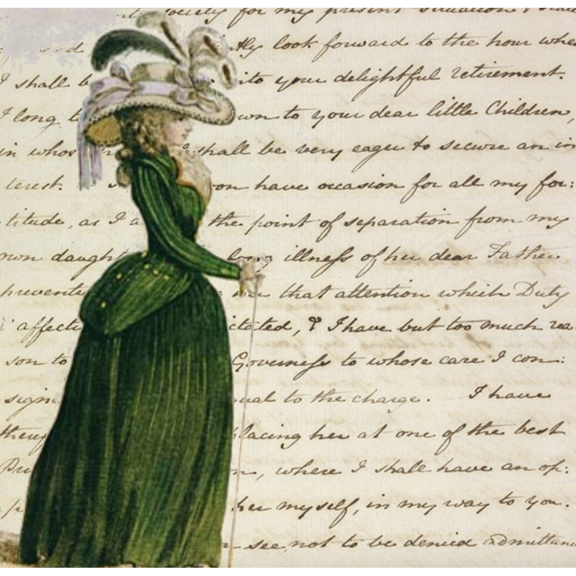 society for my present situation &
look forward to the hour when
I shall b ito your delightful retirement.
I long t own to your dear little Children,
in whos shall be very eager to secure an in
terest. on have occasion for all my for:
titude, as I a the point of separation from my
own daught long illness of her dear Father
prevente her that attention which Duty
affecti ctated, & I have but too much rea
son to Governess to whose care I con:
sign ual to the charge. I have
they lacing her at one of the best
n, where I shall have an op:
her myself, in my way to you.
see, not to be denied admittanc